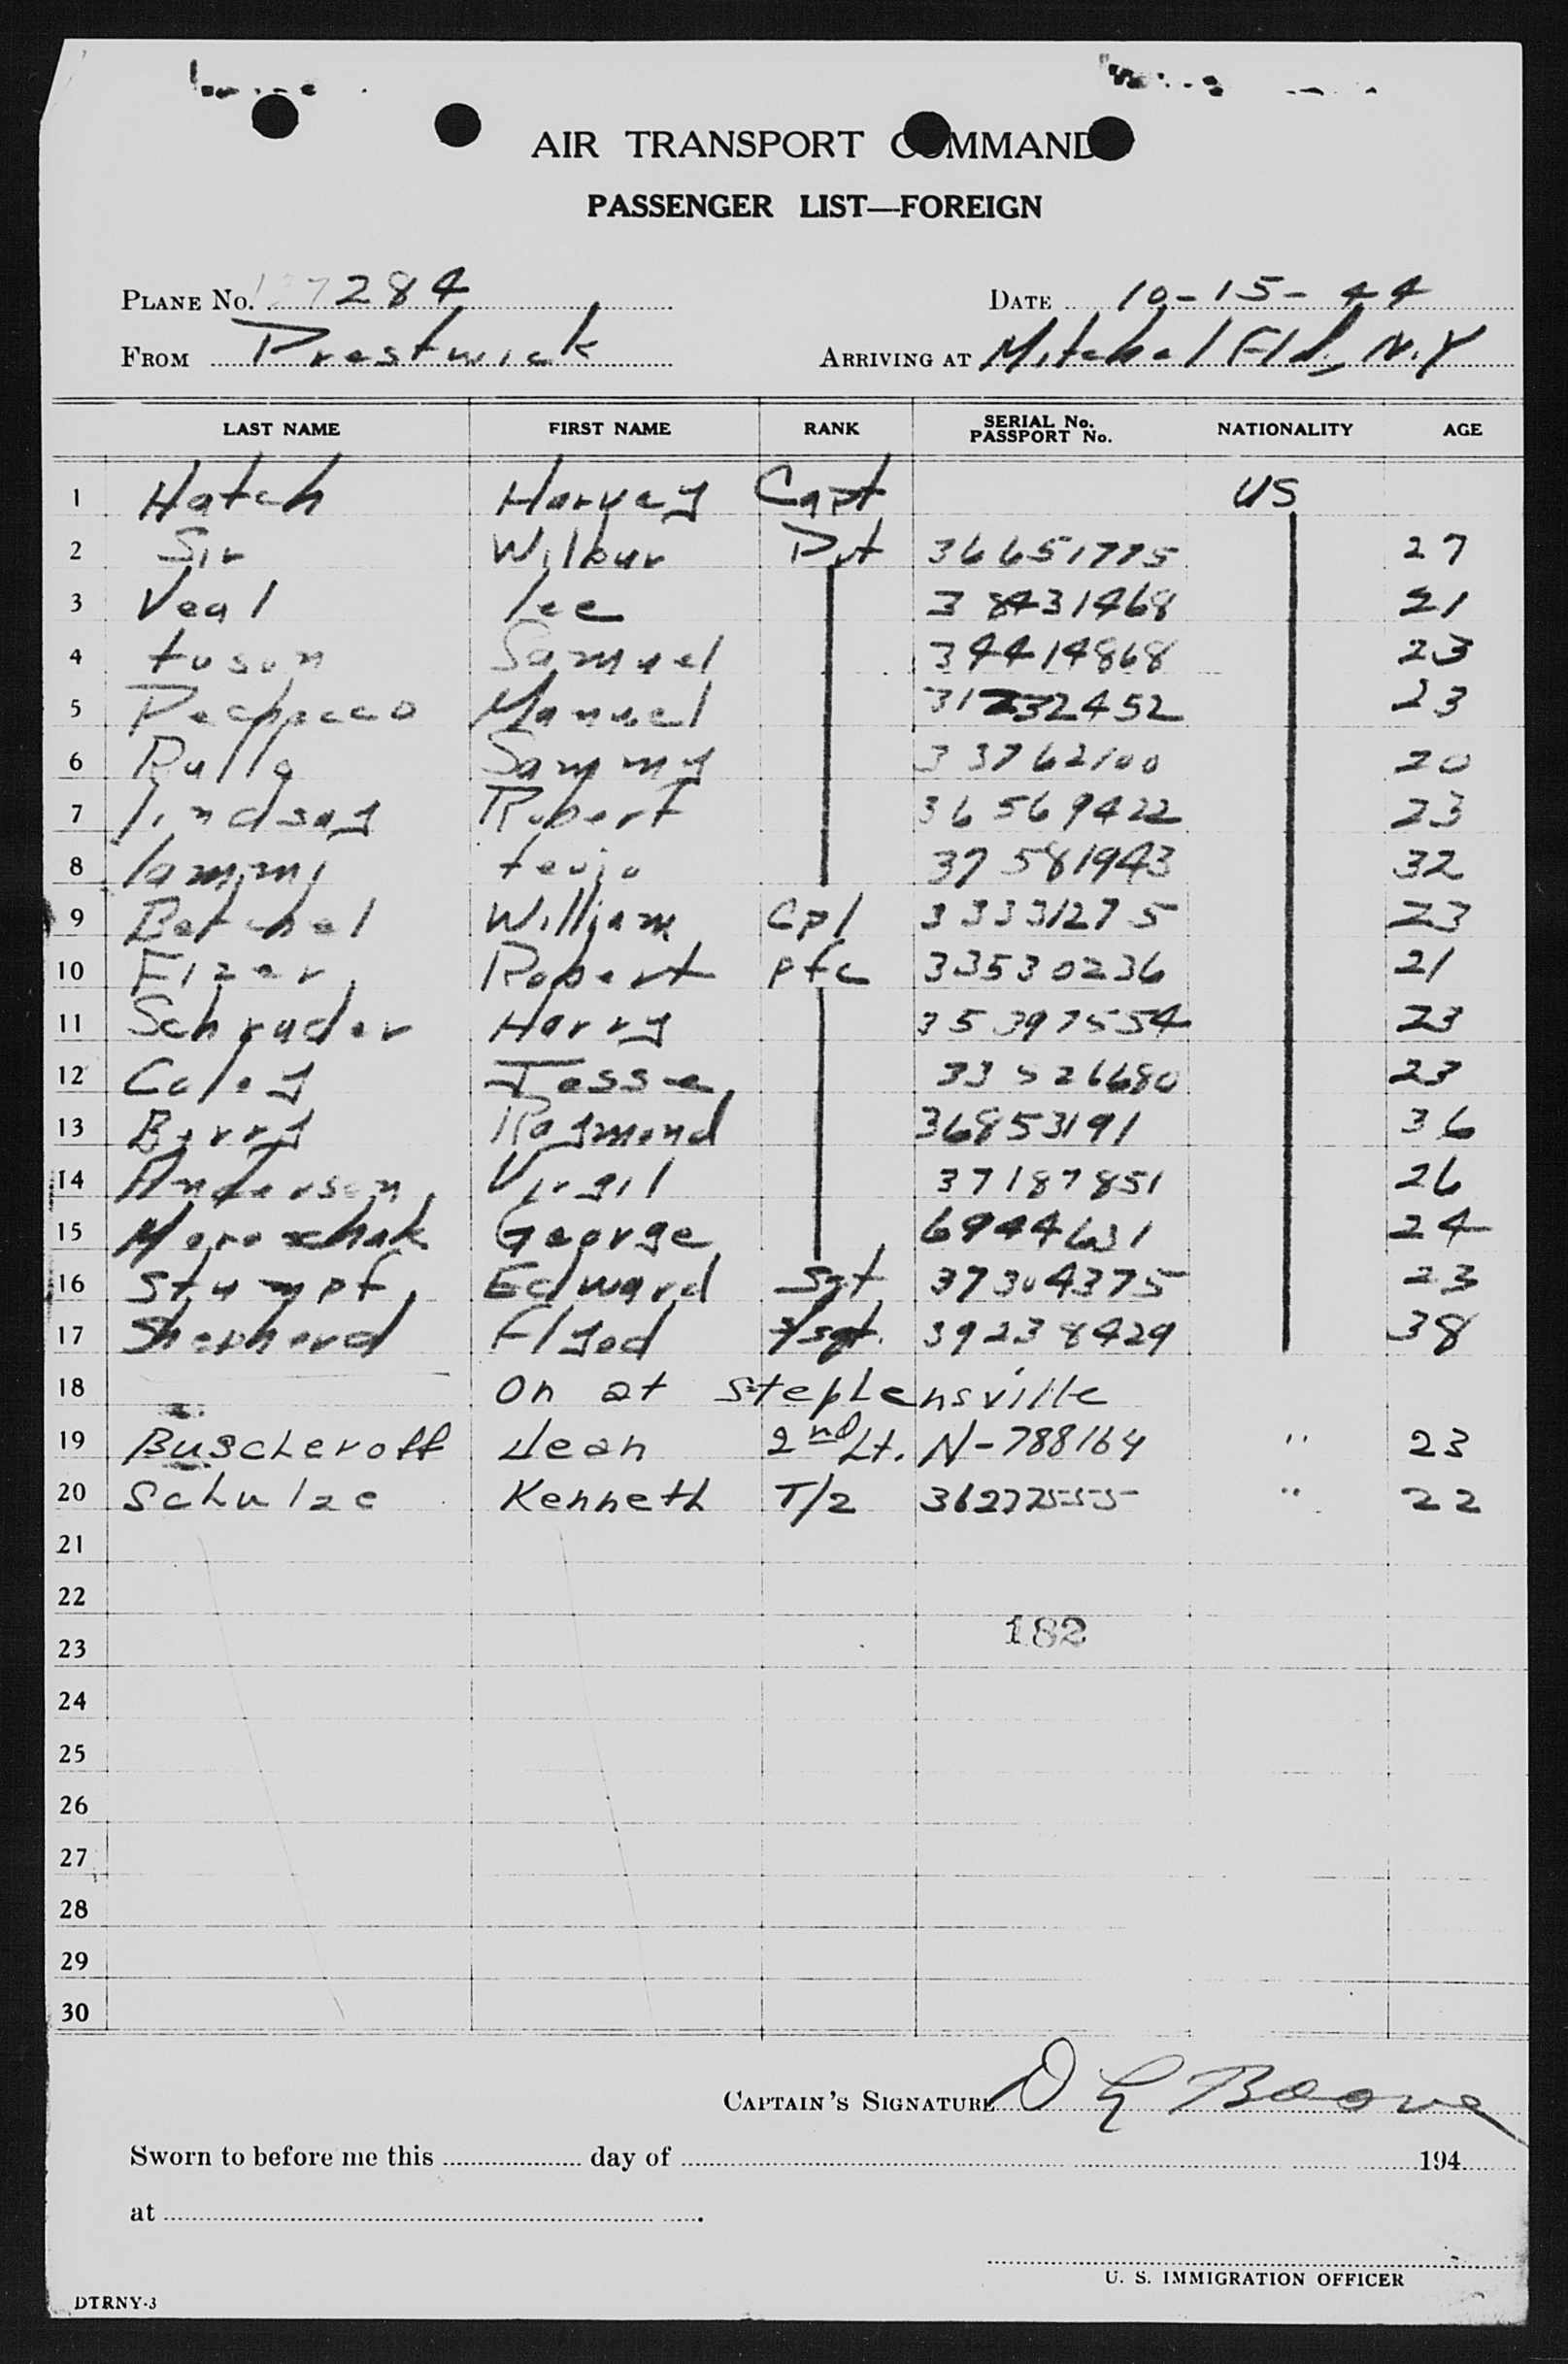 AIR TRANSPORT COMMAND
PASSENGER LIST—FOREIGN
PLANE No. 127284 DATE 10-15-44
FROM Prestwick ARRIVING AT Mitchel Fld, N.Y
LAST NAME FIRST NAME RANK SERIAL No. PASSPORT No. NATIONALITY AGE
1 Hatch Harvey Capt US
2 Sir Wilbur Pvt 36651775 27
3 Veal lee 38431468 21
4 tuson Samuel 34414868 23
5 Pacheco Manuel 31232452 23
6 Rulla Sammy 33762100 20
7 lindsay Robert 36569422 23
8 lammi teujo 37581943 32
9 Betchel William Cpl 33331275 23
10 Elzer Robert pfc 33530236 21
11 Schrader Harry 35397554 23
12 Coley Jesse 33526680 23
13 Barry Raymond 36853191 36
14 Anderson Virgil 37187851 26
15 George 6944631 24
16 Stumpf Edward Sgt 37304375 23
17 Shepherd Flyod Sgt. 39238429 38
18 On at Stephensville
19 Buscheroff Jean 2nd Lt. N-788164 " 23
20 Schulze Kenneth T/2 36277555 " 22
21
22
23 182
24
25
26
27
28
29
30
CAPTAIN'S SIGNATURE D G Boone
Sworn to before me this day of 194
at .
U. S. IMMIGRATION OFFICER
DTRNY-3